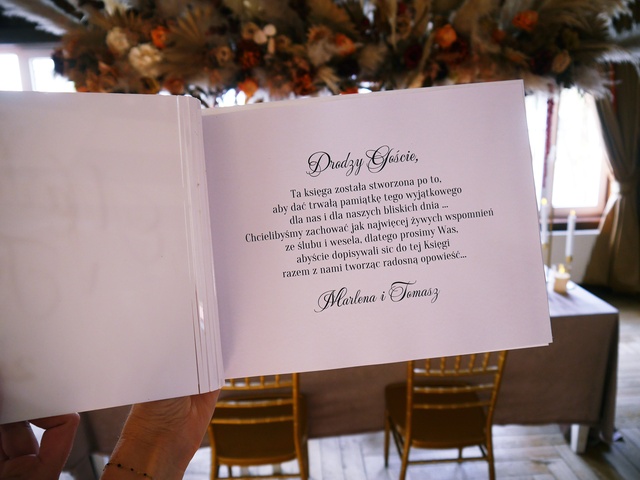 Drodzy Goście,
Ta księga została stworzona po to,
aby dać trwałą pamiątkę tego wyjątkowego
dla nas i dla naszych bliskich dnia ...
Chcielibyśmy zachować jak najwięcej żywych wspomnień
ze ślubu i wesela, dlatego prosimy Was,
abyście dopisywali sic do tej Księgi
razem z nami tworząc radosną opowieść...
Marlena i Tomasz